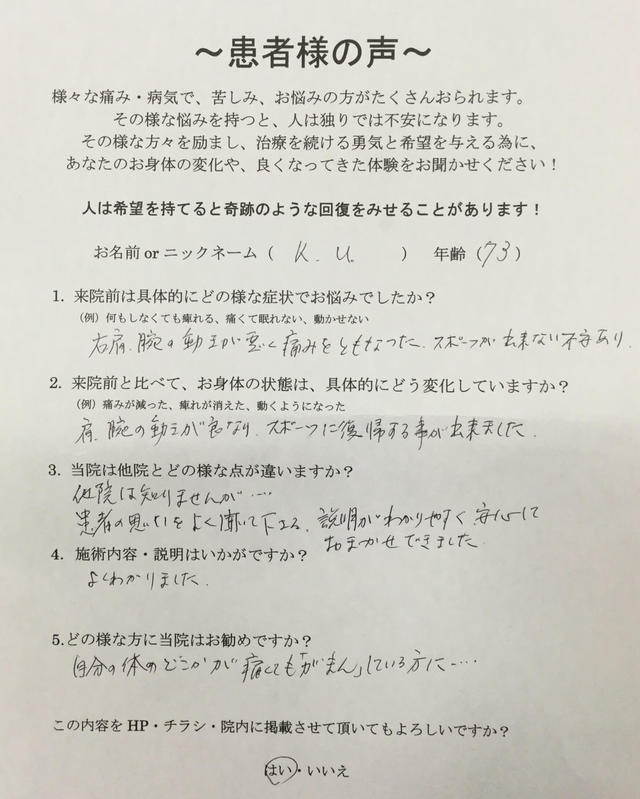 ～患者様の声～
様々な痛み・病気で、苦しみ、お悩みの方がたくさんおられます。
その様な悩みを持つと、人は独りでは不安になります。
その様な方々を励まし、治療を続ける勇気と希望を与える為に、
あなたのお身体の変化や、良くなってきた体験をお聞かせください！
人は希望を持てると奇跡のような回復をみせることがあります！
お名前 or ニックネーム（ K. U. ） 年齢（73）
1. 来院前は具体的にどの様な症状でお悩みでしたか？
（例）何もしなくても痺れる、痛くて眠れない、動かせない
右肩、腕の動きが悪く痛みをともなった。スポーツが出来ない不安あり.
2. 来院前と比べて、お身体の状態は、具体的にどう変化していますか？
（例）痛みが減った、痺れが消えた、動くようになった
肩、腕の動きが良なり、スポーツに復帰する事が出来ました.
3. 当院は他院とどの様な点が違いますか？
他院は知りませんが・・・
患者の思いをよく聞いて下さる、説明がわかりやすく安心して
おまかせできました
4. 施術内容・説明はいかがですか？
よくわかりました.
5.どの様な方に当院はお勧めですか？
自分の体のどこかが痛くても「がまん」している方に・・・
この内容を HP・チラシ・院内に掲載させて頂いてもよろしいですか？
はい・いいえ